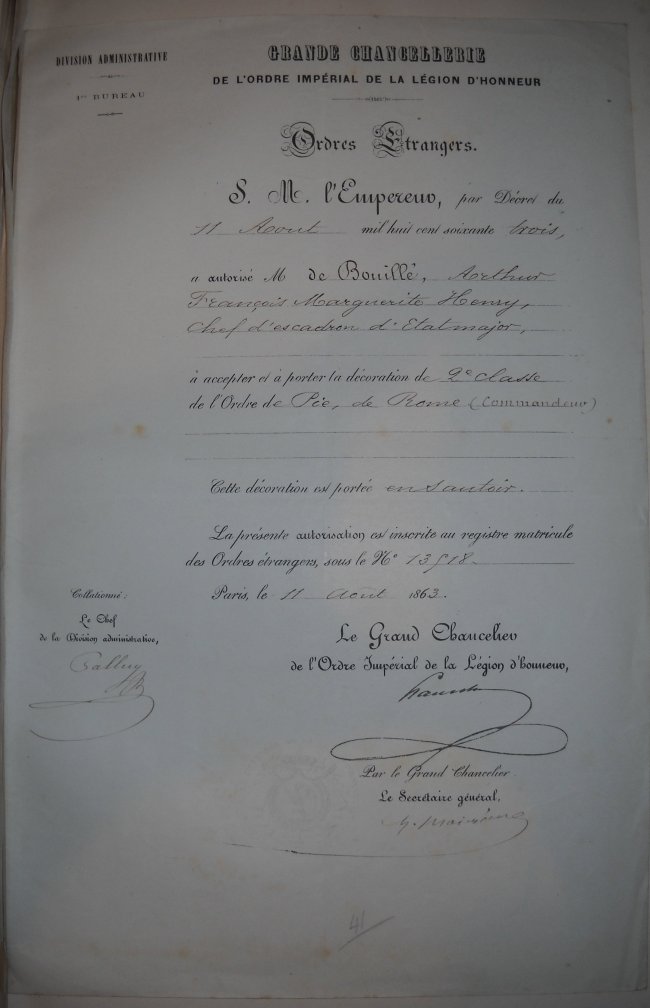 DIVISION ADMINISTRATIVE
1er BUREAU
GRANDE CHANCELLERIE
DE L'ORDRE IMPÉRIAL DE LA LÉGION D'HONNEUR
Ordres Étrangers.
S. M. l'Empereur, par Décret du
11 Aout mil huit cent soixante trois,
a autorisé M de Bouillé, Arthur
François Marguerite Henry,
Chef d'escadron d'Etatmajor,
à accepter et à porter la décoration de 2e classe
de l'Ordre de Pie, de Rome (Commandeur)
Cette décoration est portée en sautoir.
La présente autorisation est inscrite au registre matricule
des Ordres étrangers, sous le No 13518
Paris, le 11 août 1863.
Collationné:
Le Chef
de la Division administrative,
Le Grand Chancelier
de l'Ordre Impérial de la Légion d'honneur,
Par le Grand Chancelier
Le Secrétaire général,
41